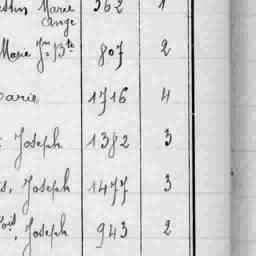 Marie 362 1
Ange
Marie Jn Bte 807 2
Marie 1716 4
Joseph 1382 3
Joseph 1477 3
Joseph 943 2